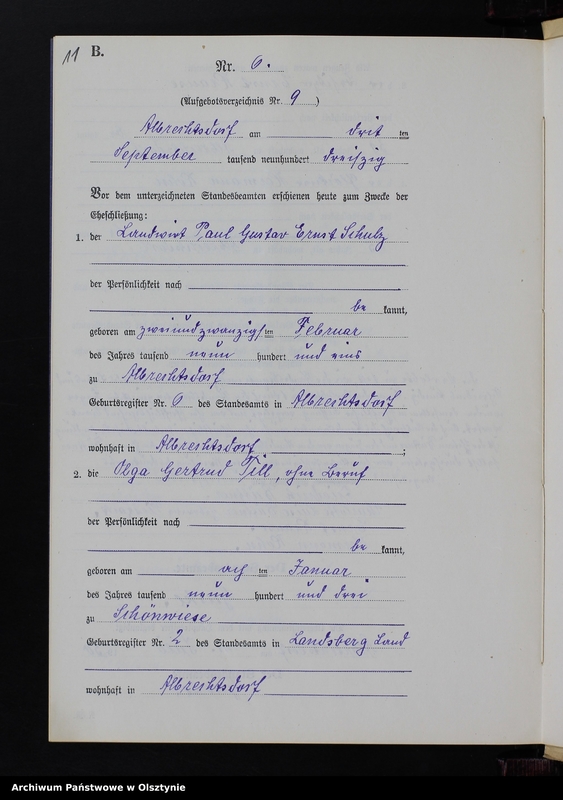 11 B.
Nr. 6.
(Aufgebotsverzeichnis Nr. 9)
Albrechtsdorf am drit ten
September tausend neunhundert dreißig
Vor dem unterzeichneten Standesbeamten erschienen heute zum Zwecke der
Eheschließung:
1. der Landwirt Paul Gustav Ernst Schulz
der Persönlichkeit nach
be kannt,
geboren am zweiundzwanzigs ten Februar
des Jahres tausend neun hundert und eins
zu Albrechtsdorf
Geburtsregister Nr. 6 des Standesamts in Albrechtsdorf
wohnhaft in Albrechtsdorf ;
2. die Olga Gertrud Till, ohne Beruf
der Persönlichkeit nach
be kannt,
geboren am ach ten Januar
des Jahres tausend neun hundert und drei
zu Schönwiese
Geburtsregister Nr. 2 des Standesamts in Landsberg Land
wohnhaft in Albrechtsdorf
Archiwum Państwowe w Olsztynie